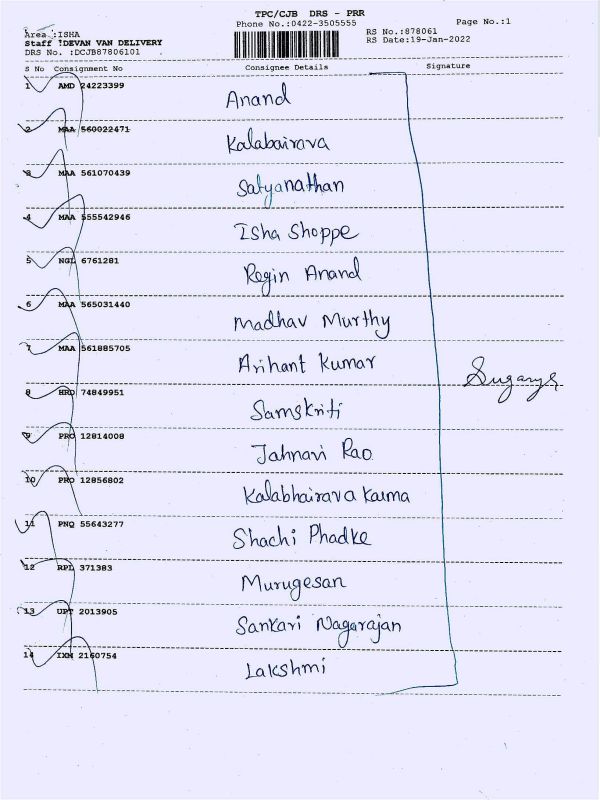 TPC/CJB DRS - PRR
Phone No.:0422-3505555
Page No.:1
Area :ISHA
RS No.:878061
Staff :DEVAN VAN DELIVERY
RS Date:19-Jan-2022
DRS No. :DCJB87806101
S No Consignment No Consignee Details Signature
1 AMD 24223399 Anand
2 MAA 560022471 Kalabairava
3 MAA 561070439 Satyanathan
4 MAA 555542946 Isha Shoppe
5 NGL 6761281 Regin Anand
6 MAA 565031440 Madhav Murthy
7 MAA 561885705 Arihant Kumar
8 HRD 74849951 Samskriti
9 PRO 12814008 Jahnavi Rao
10 PRO 12856802 Kalabhairava Karma
11 PNQ 55643277 Shachi Phadke
12 RPL 371383 Murugesan
13 UPT 2013905 Sankari Nagarajan
14 IXM 2160754 Lakshmi